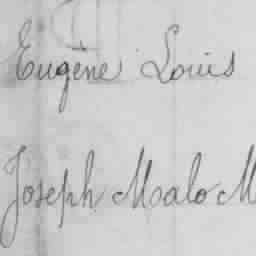 Eugène Louis
Joseph Malo M